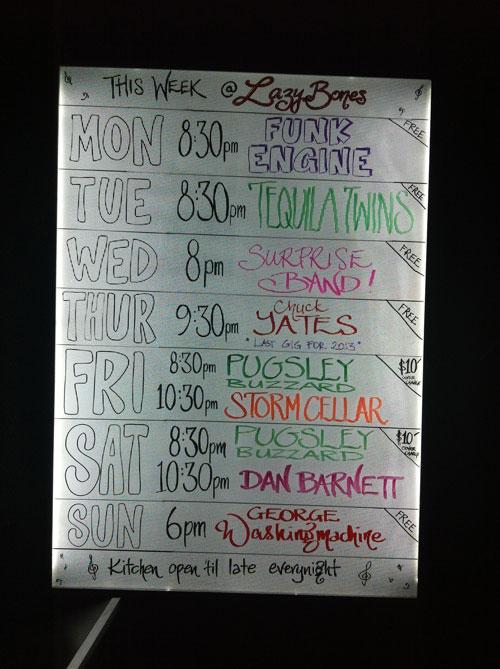 THIS WEEK @ LazyBones
MON 8:30pm FUNK ENGINE FREE
TUE 8:30pm TEQUILA TWINS FREE
WED 8pm SURPRISE BAND! FREE
THUR 9:30pm Chuck YATES FREE
"LAST GIG FOR 2013"
FRI 8:30pm PUGSLEY BUZZARD $10 COVER CHARGE
10:30pm STORMCELLAR
SAT 8:30pm PUGSLEY BUZZARD $10 COVER CHARGE
10:30pm DAN BARNETT
SUN 6pm GEORGE Washingmachine FREE
Kitchen open 'til late everynight